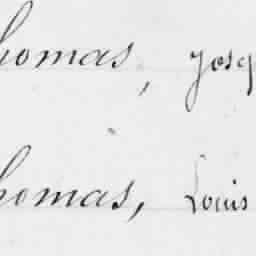 homas, Josep
homas, Louis